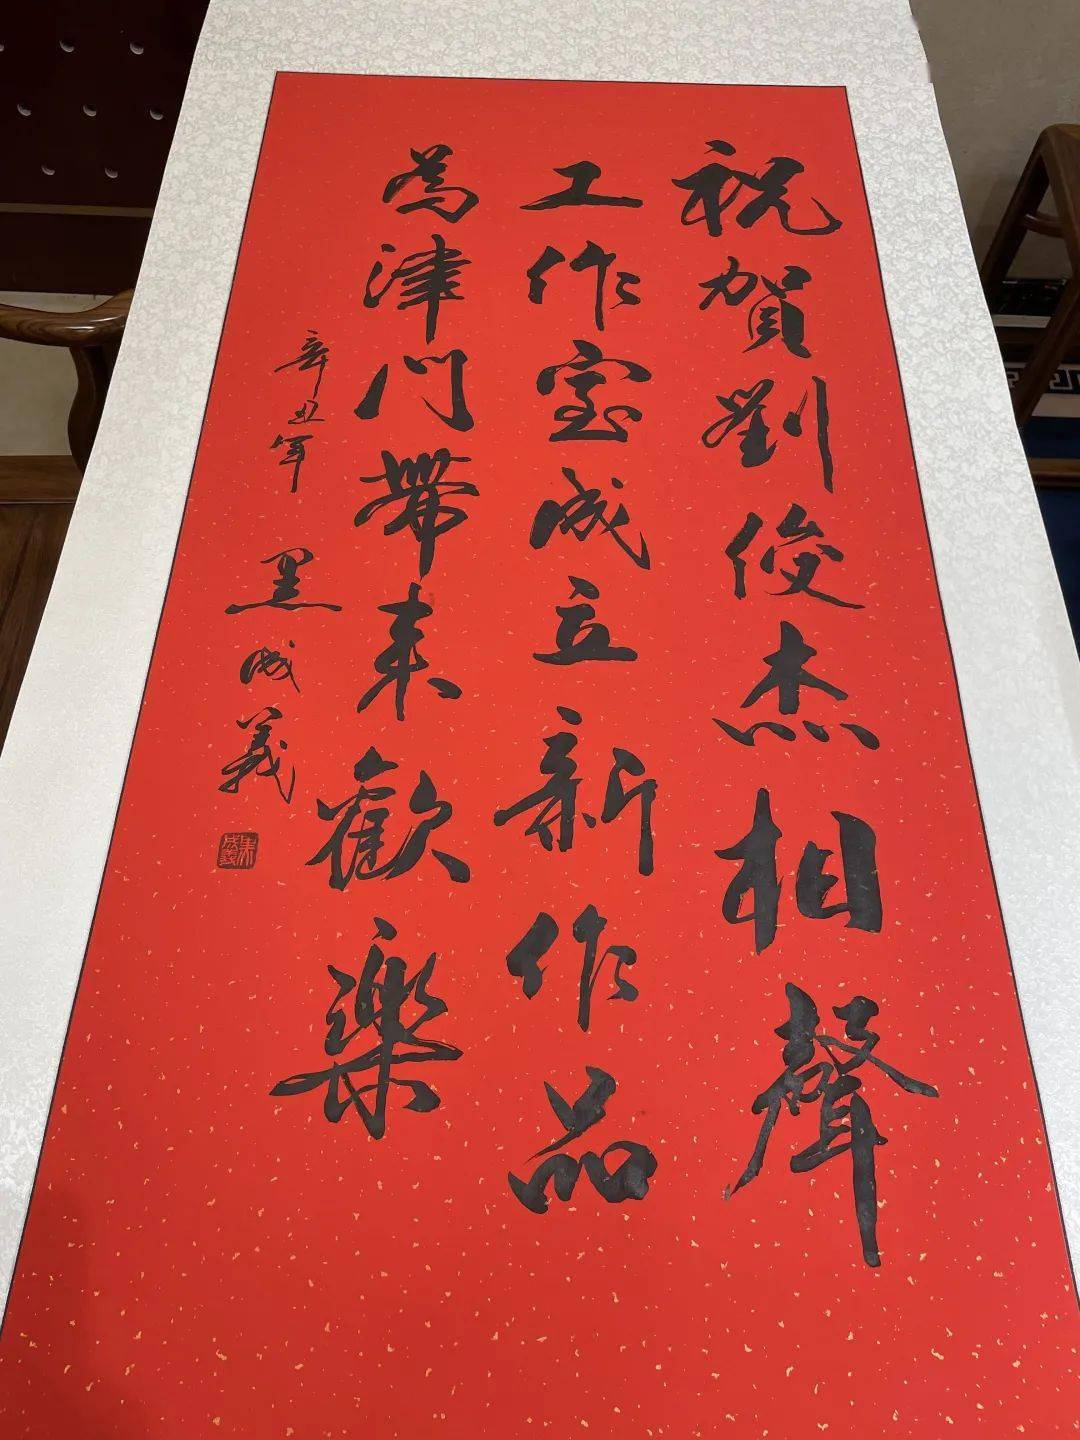 祝賀劉俊杰相聲
工作室成立新作品
為津門帶来歡樂
辛丑年 黑成義